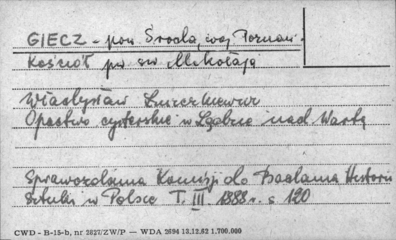 GIECZ - pow. Środa, woj. Poznań.
Kościół pw św Mikołaja
Władysław Łuszczkiewicz
Opactwo cysterskie w Lądzie nad Wartą
Sprawozdania Komisji do Badania Historii
Sztuki w Polsce T. III. 1888 r. s 120
CWD - B-15-b, nr 2827/ZW/P — WDA 2694 13.12.62 1.700.000